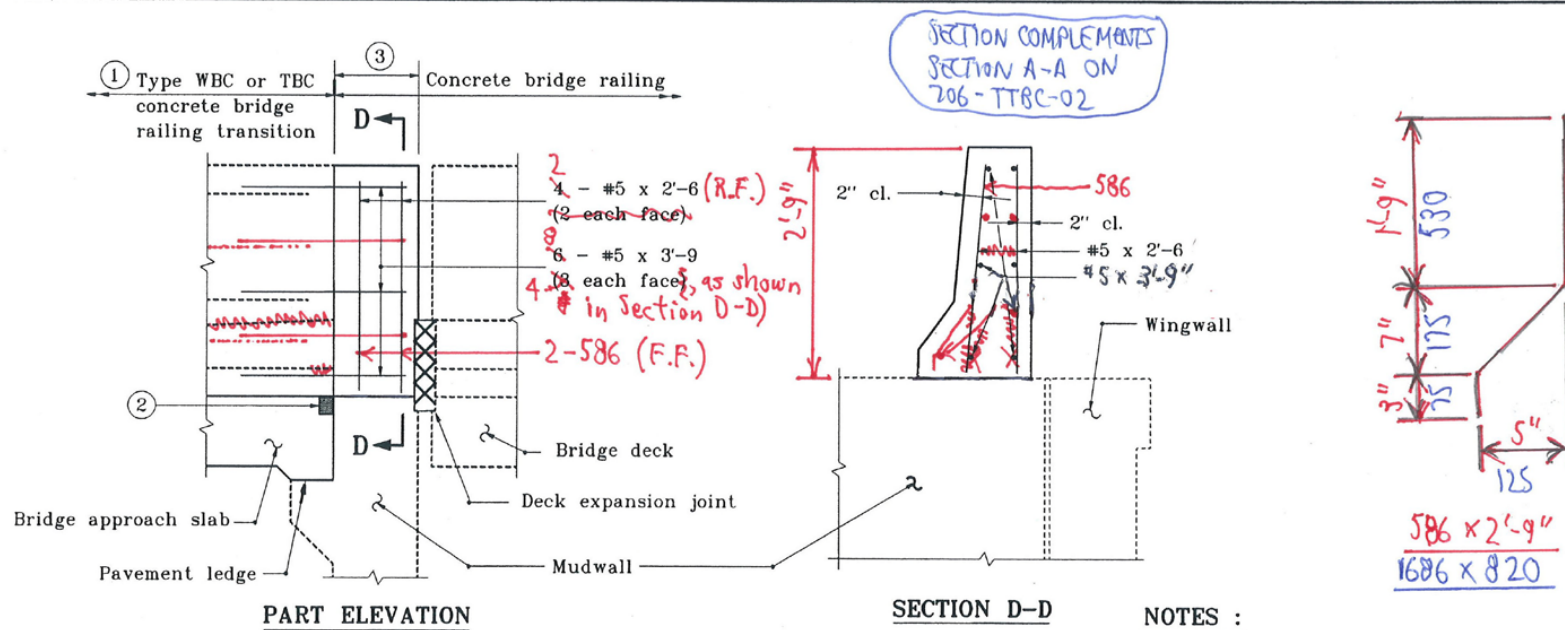 ① Type WBC or TBC
concrete bridge
railing transition
③
Concrete bridge railing
D
2
4 - #5 x 2'-6 (R.F.)
(2 each face)
8
6 - #5 x 3'-9
4 (3 each face), as shown
in Section D-D)
2-586 (F.F.)
②
D
Bridge deck
Deck expansion joint
Bridge approach slab
Pavement ledge
Mudwall
PART ELEVATION
SECTION COMPLEMENTS
SECTION A-A ON
706-TTBC-02
2'-9"
2" cl.
586
2" cl.
#5 x 2'-6
#5 x 3'-9"
Wingwall
SECTION D-D
NOTES :
1'-9"
530
7"
175
3"
75
5"
125
586 x 2'-9"
1686 x 820